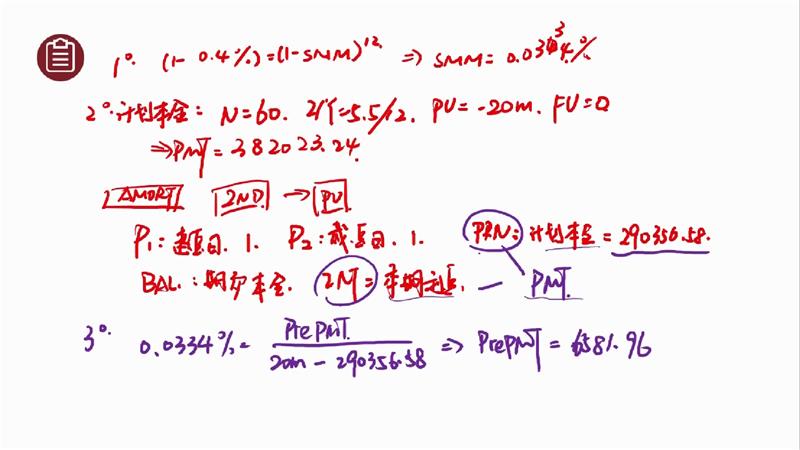 1°. (1-0.4%)=(1-SMM)^12 ⇒ SMM=0.0334%
2°. 计划本金: N=60. I/Y=5.5/12. PV=-20m. FV=0
⇒PMT=382023.24.
AMORT 2ND → PV
P1: 起点日. 1. P2: 截点日. 1. PRN: 计划本金=290356.58.
BAL.: 期初本金. INT=本期利息. — PMT
3°. 0.0334%=PrePMT/(20m-290356.58) ⇒ PrePMT=6581.96